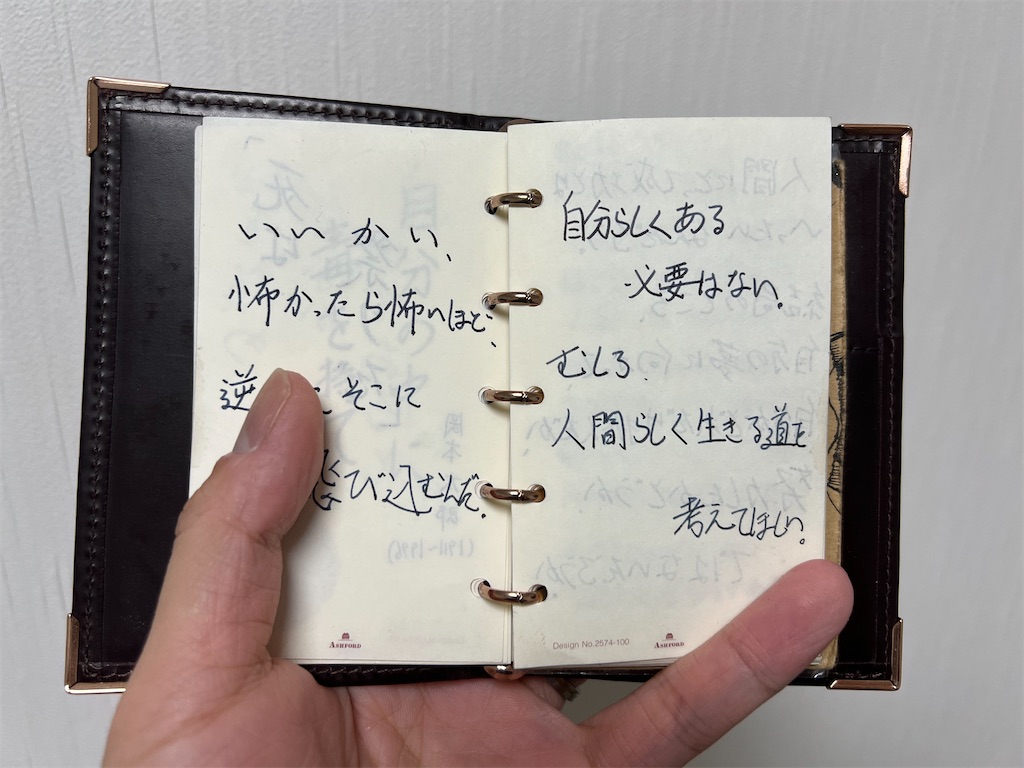 いいかい、
怖かったら怖いほど、
逆 そこに
飛び込むんだ。
ASHFORD
自分らしくある
必要はない。
むしろ、
人間らしく生きる道を
考えてほしい。
Design No.2574-100
ASHFORD